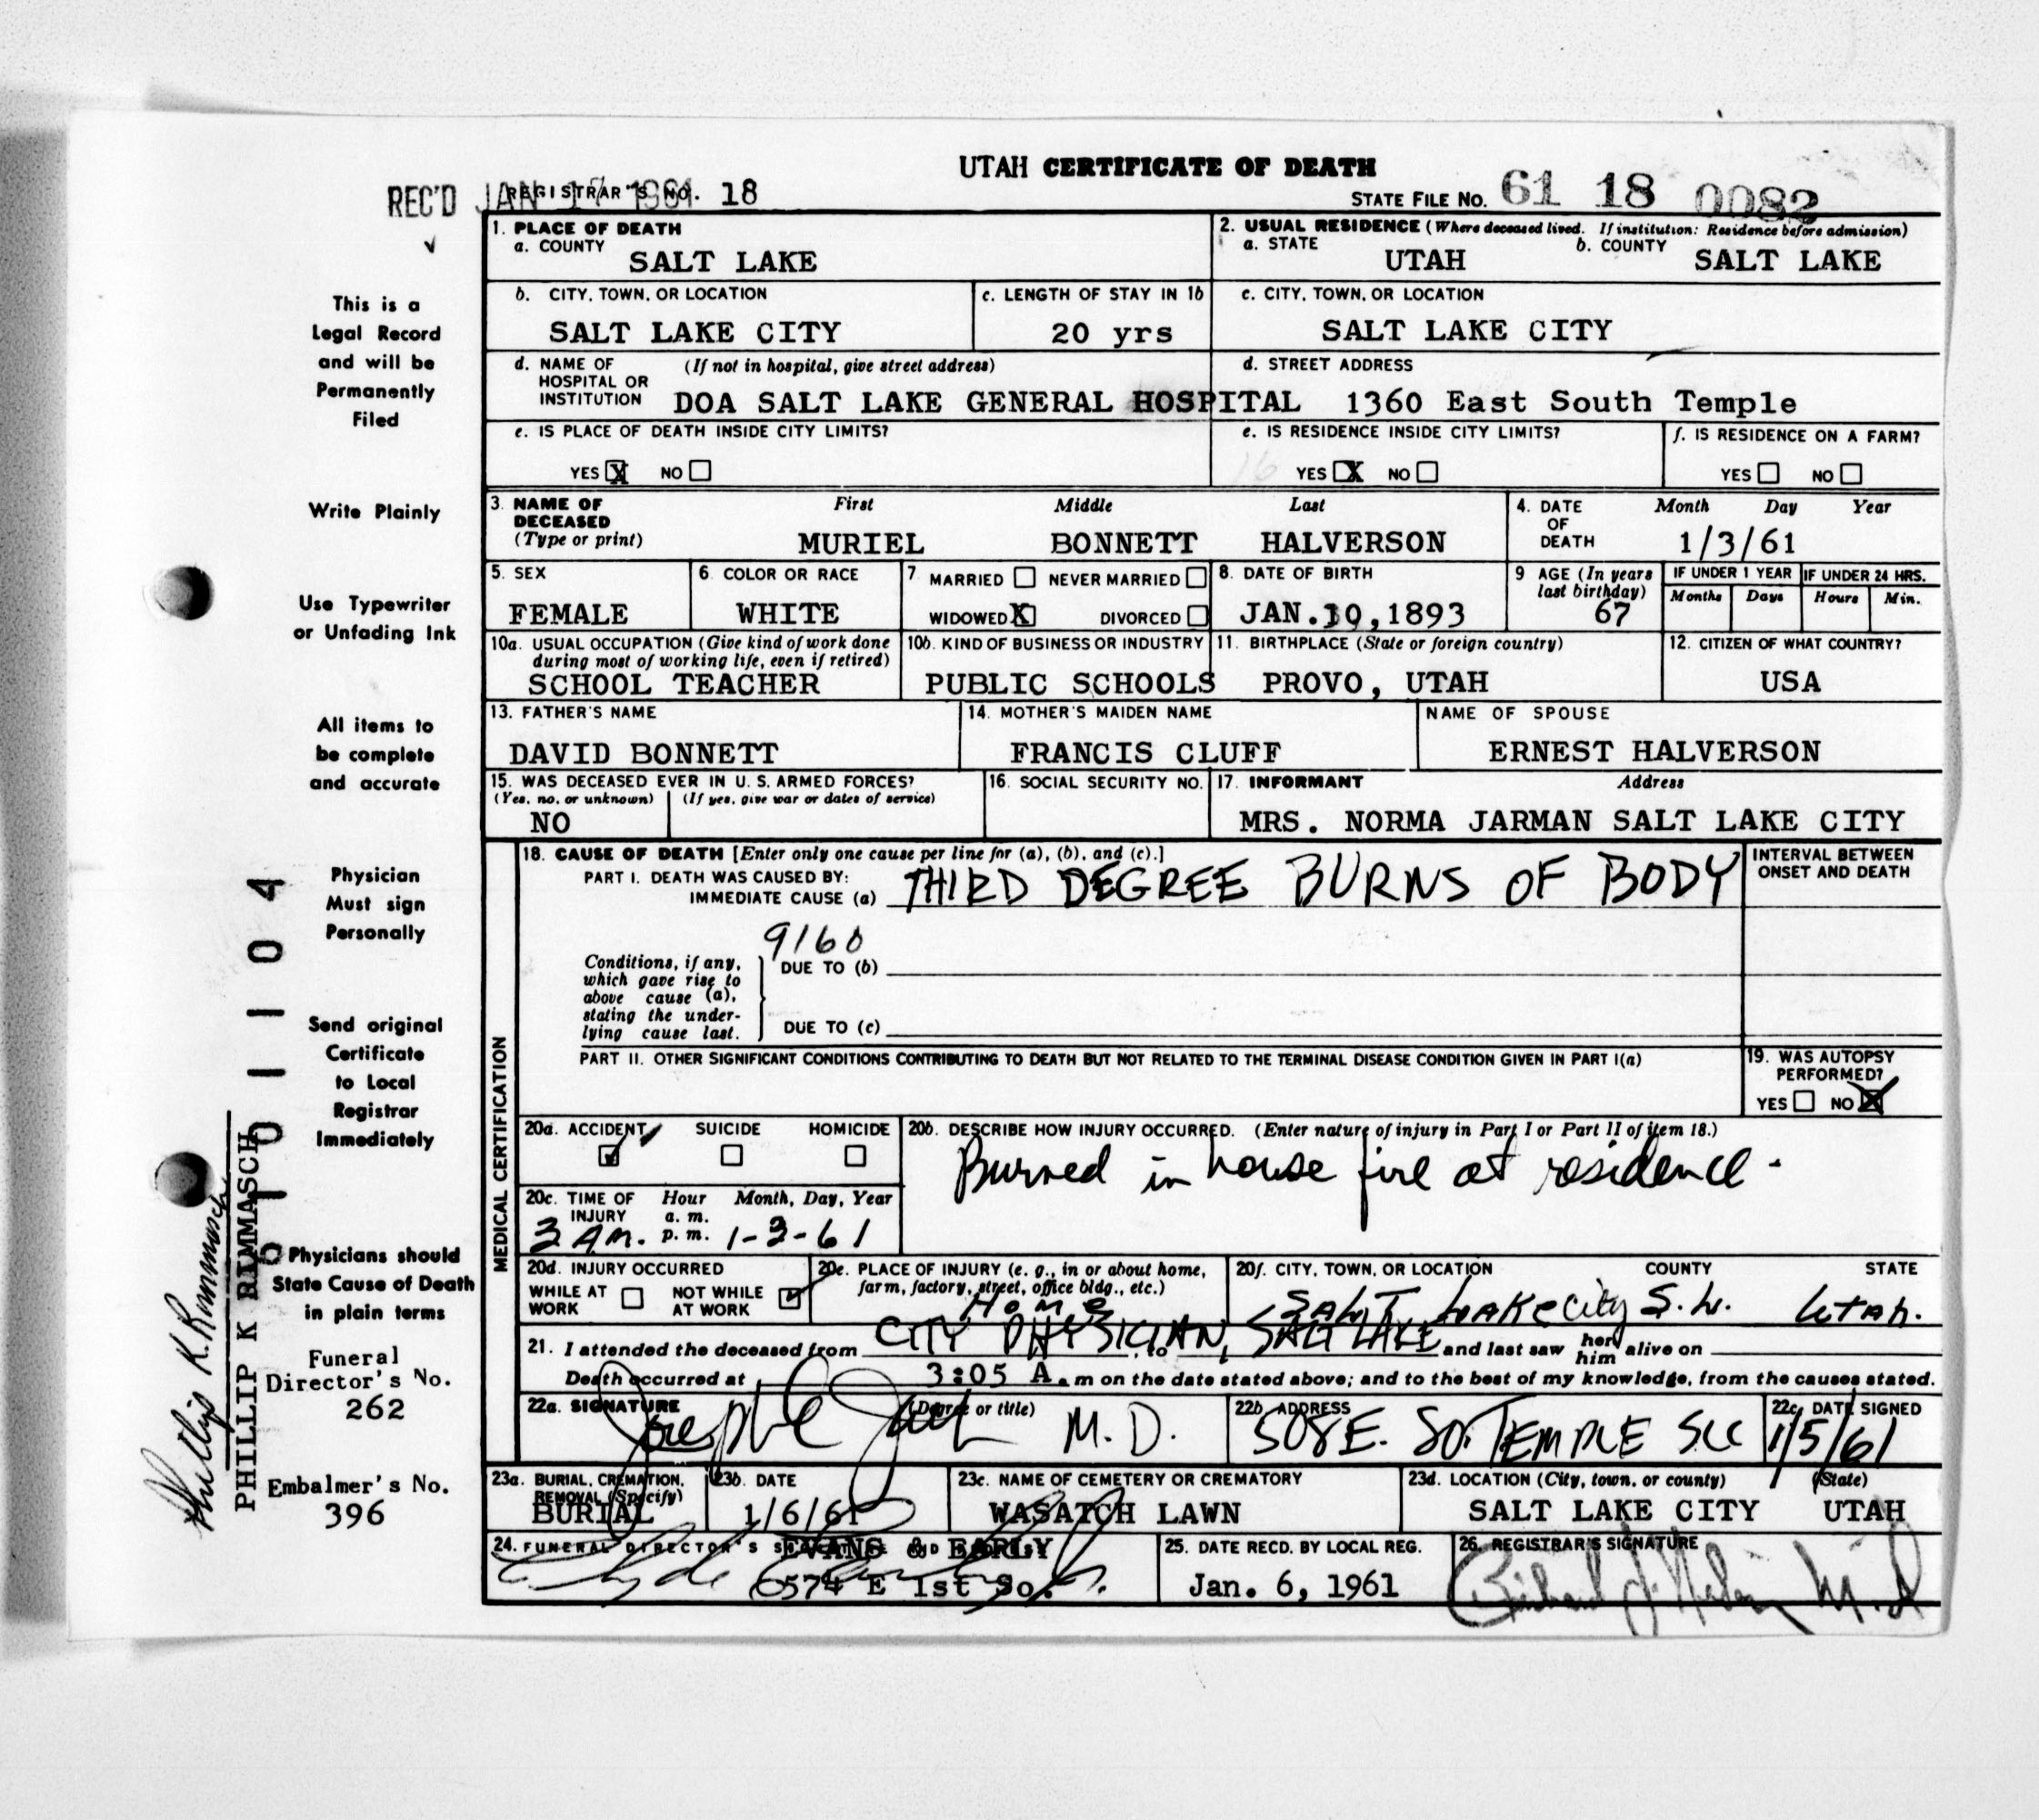 UTAH CERTIFICATE OF DEATH
REC'D JAN 17 1961
REGISTRAR'S NO. 18
STATE FILE NO. 61 18 0082
1. PLACE OF DEATH
a. COUNTY
SALT LAKE
2. USUAL RESIDENCE (Where deceased lived. If institution: Residence before admission)
a. STATE b. COUNTY
UTAH SALT LAKE
b. CITY, TOWN, OR LOCATION
SALT LAKE CITY
c. LENGTH OF STAY IN 1b
20 yrs
c. CITY, TOWN, OR LOCATION
SALT LAKE CITY
d. NAME OF HOSPITAL OR INSTITUTION (If not in hospital, give street address)
DOA SALT LAKE GENERAL HOSPITAL
d. STREET ADDRESS
1360 East South Temple
e. IS PLACE OF DEATH INSIDE CITY LIMITS?
YES X NO
e. IS RESIDENCE INSIDE CITY LIMITS?
16
YES X NO
f. IS RESIDENCE ON A FARM?
YES NO
3. NAME OF DECEASED (Type or print)
First Middle Last
MURIEL BONNETT HALVERSON
4. DATE OF DEATH
Month Day Year
1/3/61
5. SEX
FEMALE
6. COLOR OR RACE
WHITE
7. MARRIED NEVER MARRIED
WIDOWED X DIVORCED
8. DATE OF BIRTH
JAN. 10, 1893
9 AGE (In years last birthday)
67
IF UNDER 1 YEAR
Months Days
IF UNDER 24 HRS.
Hours Min.
10a. USUAL OCCUPATION (Give kind of work done during most of working life, even if retired)
SCHOOL TEACHER
10b. KIND OF BUSINESS OR INDUSTRY
PUBLIC SCHOOLS
11. BIRTHPLACE (State or foreign country)
PROVO, UTAH
12. CITIZEN OF WHAT COUNTRY?
USA
13. FATHER'S NAME
DAVID BONNETT
14. MOTHER'S MAIDEN NAME
FRANCIS CLUFF
NAME OF SPOUSE
ERNEST HALVERSON
15. WAS DECEASED EVER IN U. S. ARMED FORCES?
(Yes, no, or unknown) (If yes, give war or dates of service)
NO
16. SOCIAL SECURITY NO.
17. INFORMANT Address
MRS. NORMA JARMAN SALT LAKE CITY
MEDICAL CERTIFICATION
18. CAUSE OF DEATH [Enter only one cause per line for (a), (b), and (c).]
PART I. DEATH WAS CAUSED BY:
IMMEDIATE CAUSE (a) THIRD DEGREE BURNS OF BODY
INTERVAL BETWEEN ONSET AND DEATH
9160
Conditions, if any, which gave rise to above cause (a), stating the underlying cause last.
DUE TO (b)
DUE TO (c)
PART II. OTHER SIGNIFICANT CONDITIONS CONTRIBUTING TO DEATH BUT NOT RELATED TO THE TERMINAL DISEASE CONDITION GIVEN IN PART I(a)
19. WAS AUTOPSY PERFORMED?
YES NO X
20a. ACCIDENT SUICIDE HOMICIDE
20b. DESCRIBE HOW INJURY OCCURRED. (Enter nature of injury in Part I or Part II of item 18.)
Burned in house fire at residence.
20c. TIME OF INJURY Hour Month, Day, Year
a. m.
p. m.
3 AM. 1-3-61
20d. INJURY OCCURRED
WHILE AT WORK NOT WHILE AT WORK
20e. PLACE OF INJURY (e. g., in or about home, farm, factory, street, office bldg., etc.)
Home
20f. CITY, TOWN, OR LOCATION COUNTY STATE
SALT LAKE City S.L. Utah.
21. I attended the deceased from CITY PHYSICIAN, to SALT LAKE and last saw her him alive on
Death occurred at 3:05 A. m on the date stated above; and to the best of my knowledge, from the causes stated.
22a. SIGNATURE (Degree or title)
M. D.
22b. ADDRESS
508 E. SO. TEMPLE SLC
22c. DATE SIGNED
1/5/61
23a. BURIAL, CREMATION, REMOVAL (Specify)
BURIAL
23b. DATE
1/6/61
23c. NAME OF CEMETERY OR CREMATORY
WASATCH LAWN
23d. LOCATION (City, town, or county) (State)
SALT LAKE CITY UTAH
24. FUNERAL DIRECTOR'S
EVANS & EARLY
574 E 1st So.
25. DATE RECD. BY LOCAL REG.
Jan. 6, 1961
26. REGISTRAR'S SIGNATURE
This is a
Legal Record
and will be
Permanently
Filed
Write Plainly
Use Typewriter
or Unfading Ink
All items to
be complete
and accurate
Physician
Must sign
Personally
Send original
Certificate
to Local
Registrar
Immediately
Physicians should
State Cause of Death
in plain terms
Funeral
Director's No.
262
Embalmer's No.
396
PHILLIP K RIMMASCH
Phillip K. Rimmasch